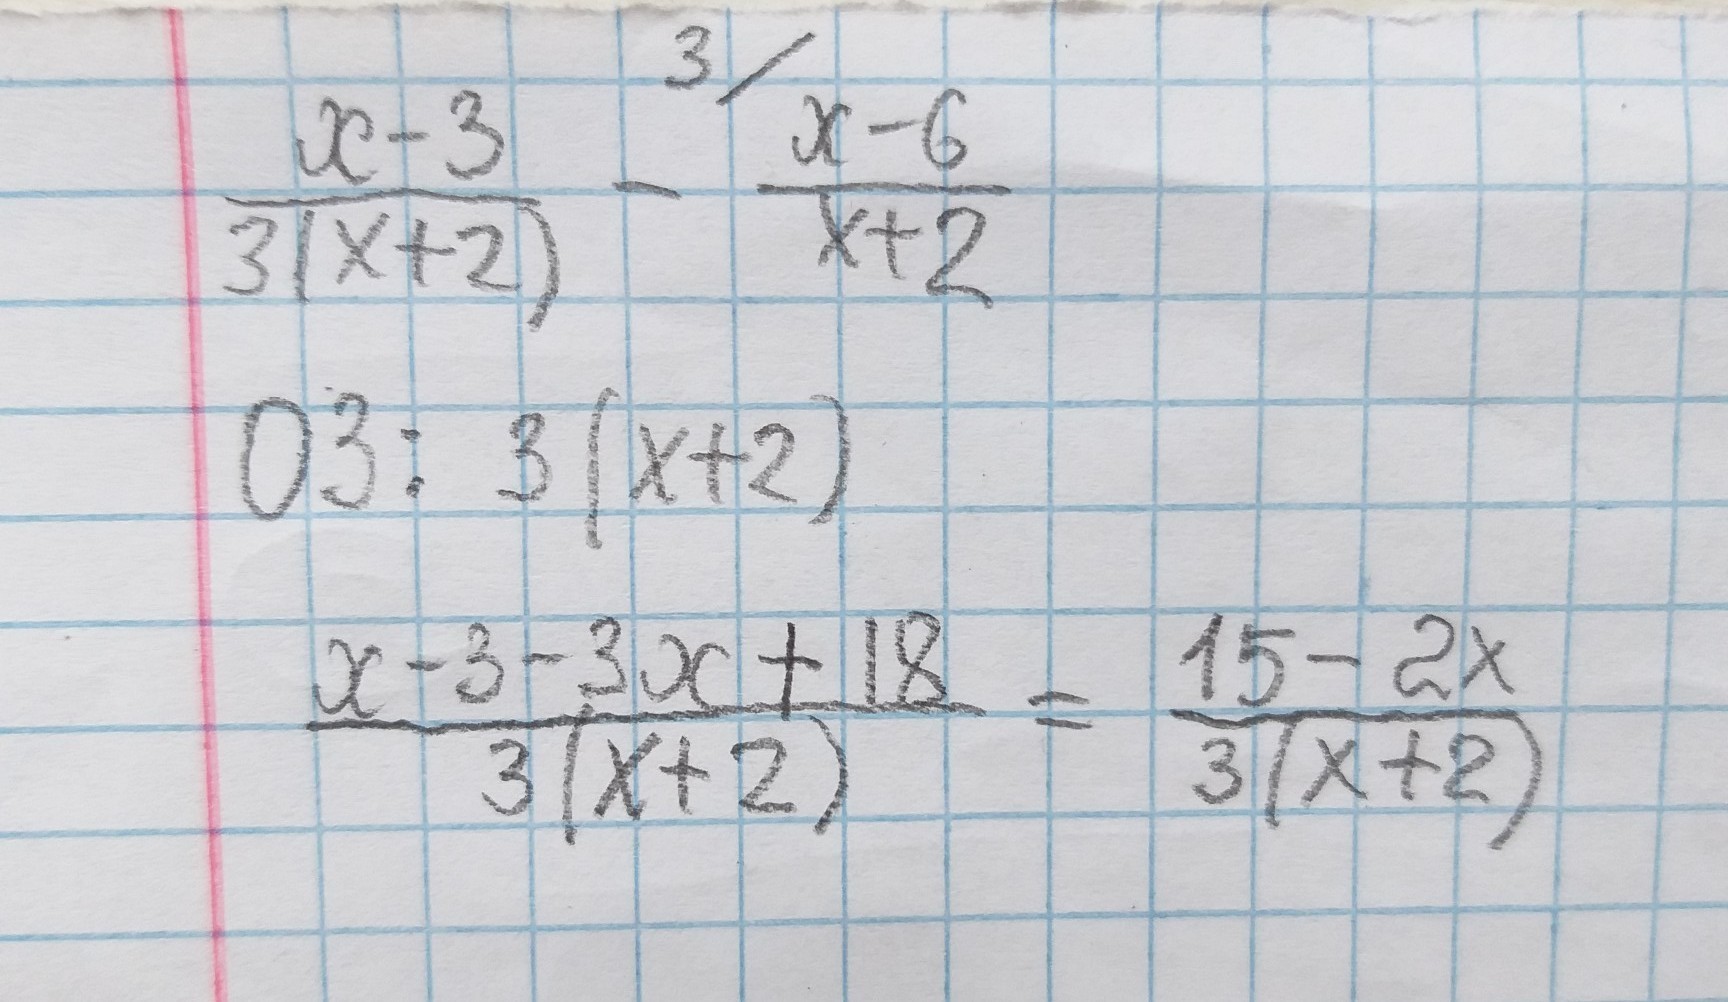 \frac{x-3}{3(x+2)} - \frac{x-6}{x+2}^{3/}
ОЗ: 3(x+2)
\frac{x-3-3x+18}{3(x+2)} = \frac{15-2x}{3(x+2)}